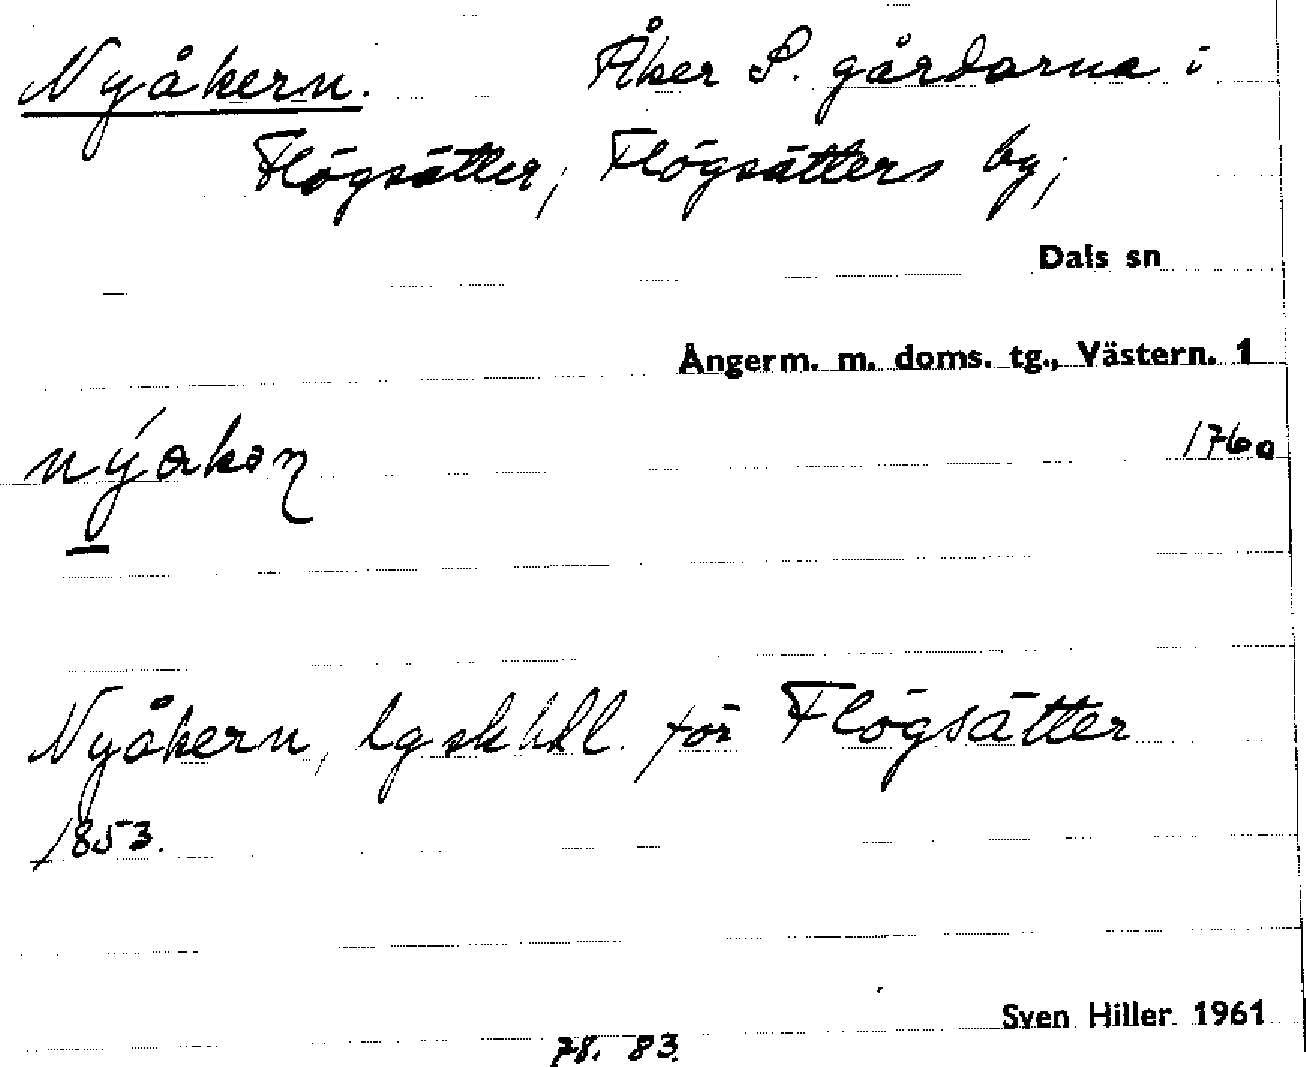 Nyåkern. Åker S. gårdarna i
Flögsätter, Flögsätters by,
Dals sn
Ångerm. m. doms. tg., Västern. 1
nýakəɳ 176a
Nyåkern, Lgskhdl. för Flögsätter
1853.
Sven Hiller 1961
78. 83